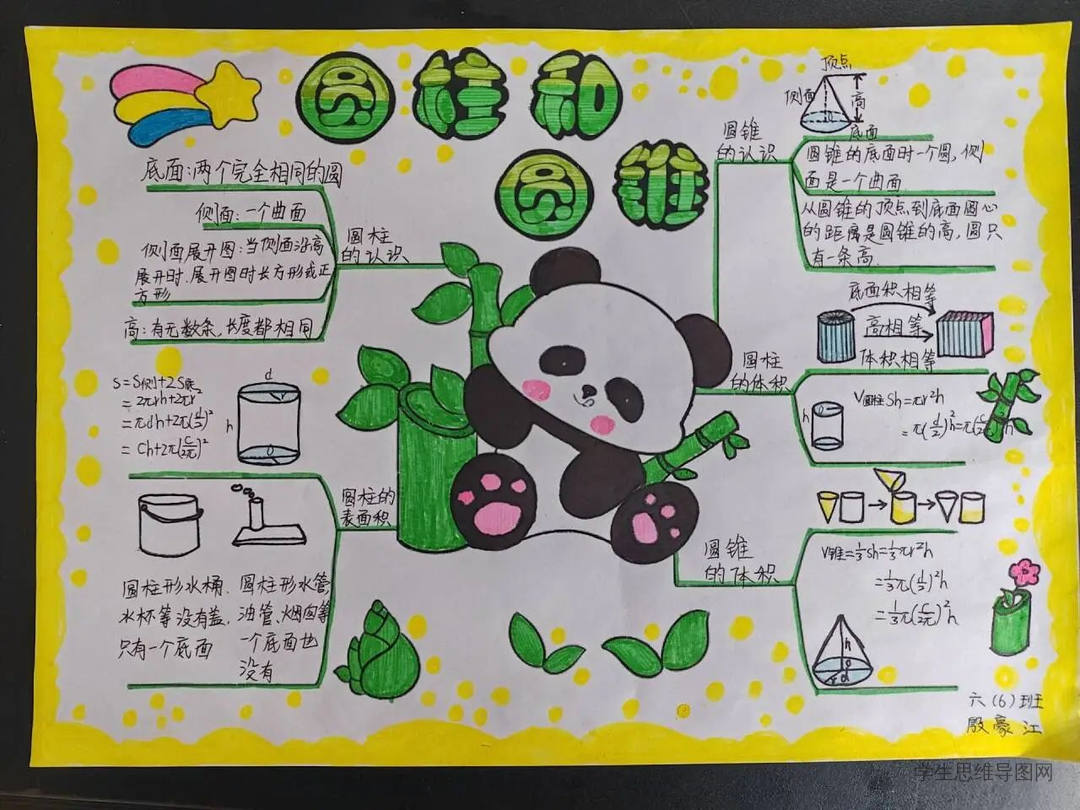 圆柱和
圆锥
底面:两个完全相同的圆
侧面:一个曲面
侧面展开图:当侧面沿高
展开时.展开图时长方形或正
方形
高:有无数条,长度都相同
圆柱
的认识
S=S侧+2S底
=2πrh+2πr²
=πdh+2π(d/2)²
=Ch+2π(C/2π)²
d
h
圆柱的
表面积
圆柱形水桶、
水杯等没有盖,
只有一个底面
圆柱形水管,
油管、烟囱等
一个底面也
没有
圆锥
的认识
顶点
侧面
高
底面
圆锥的底面时一个圆,侧
面是一个曲面
从圆锥的顶点到底面圆心
的距离是圆锥的高,圆只
有一条高.
圆柱
的体积
底面积相等
高相等
体积相等
h
V圆柱Sh=πr²h
=π(d/2)²h=π(C/2π)²h
圆锥
的体积
V锥=⅓Sh=⅓πr²h
=⅓π(d/2)²h
=⅓π(C/2π)²h
h
r
d
六(6)班
殷豪江
学生思维导图网